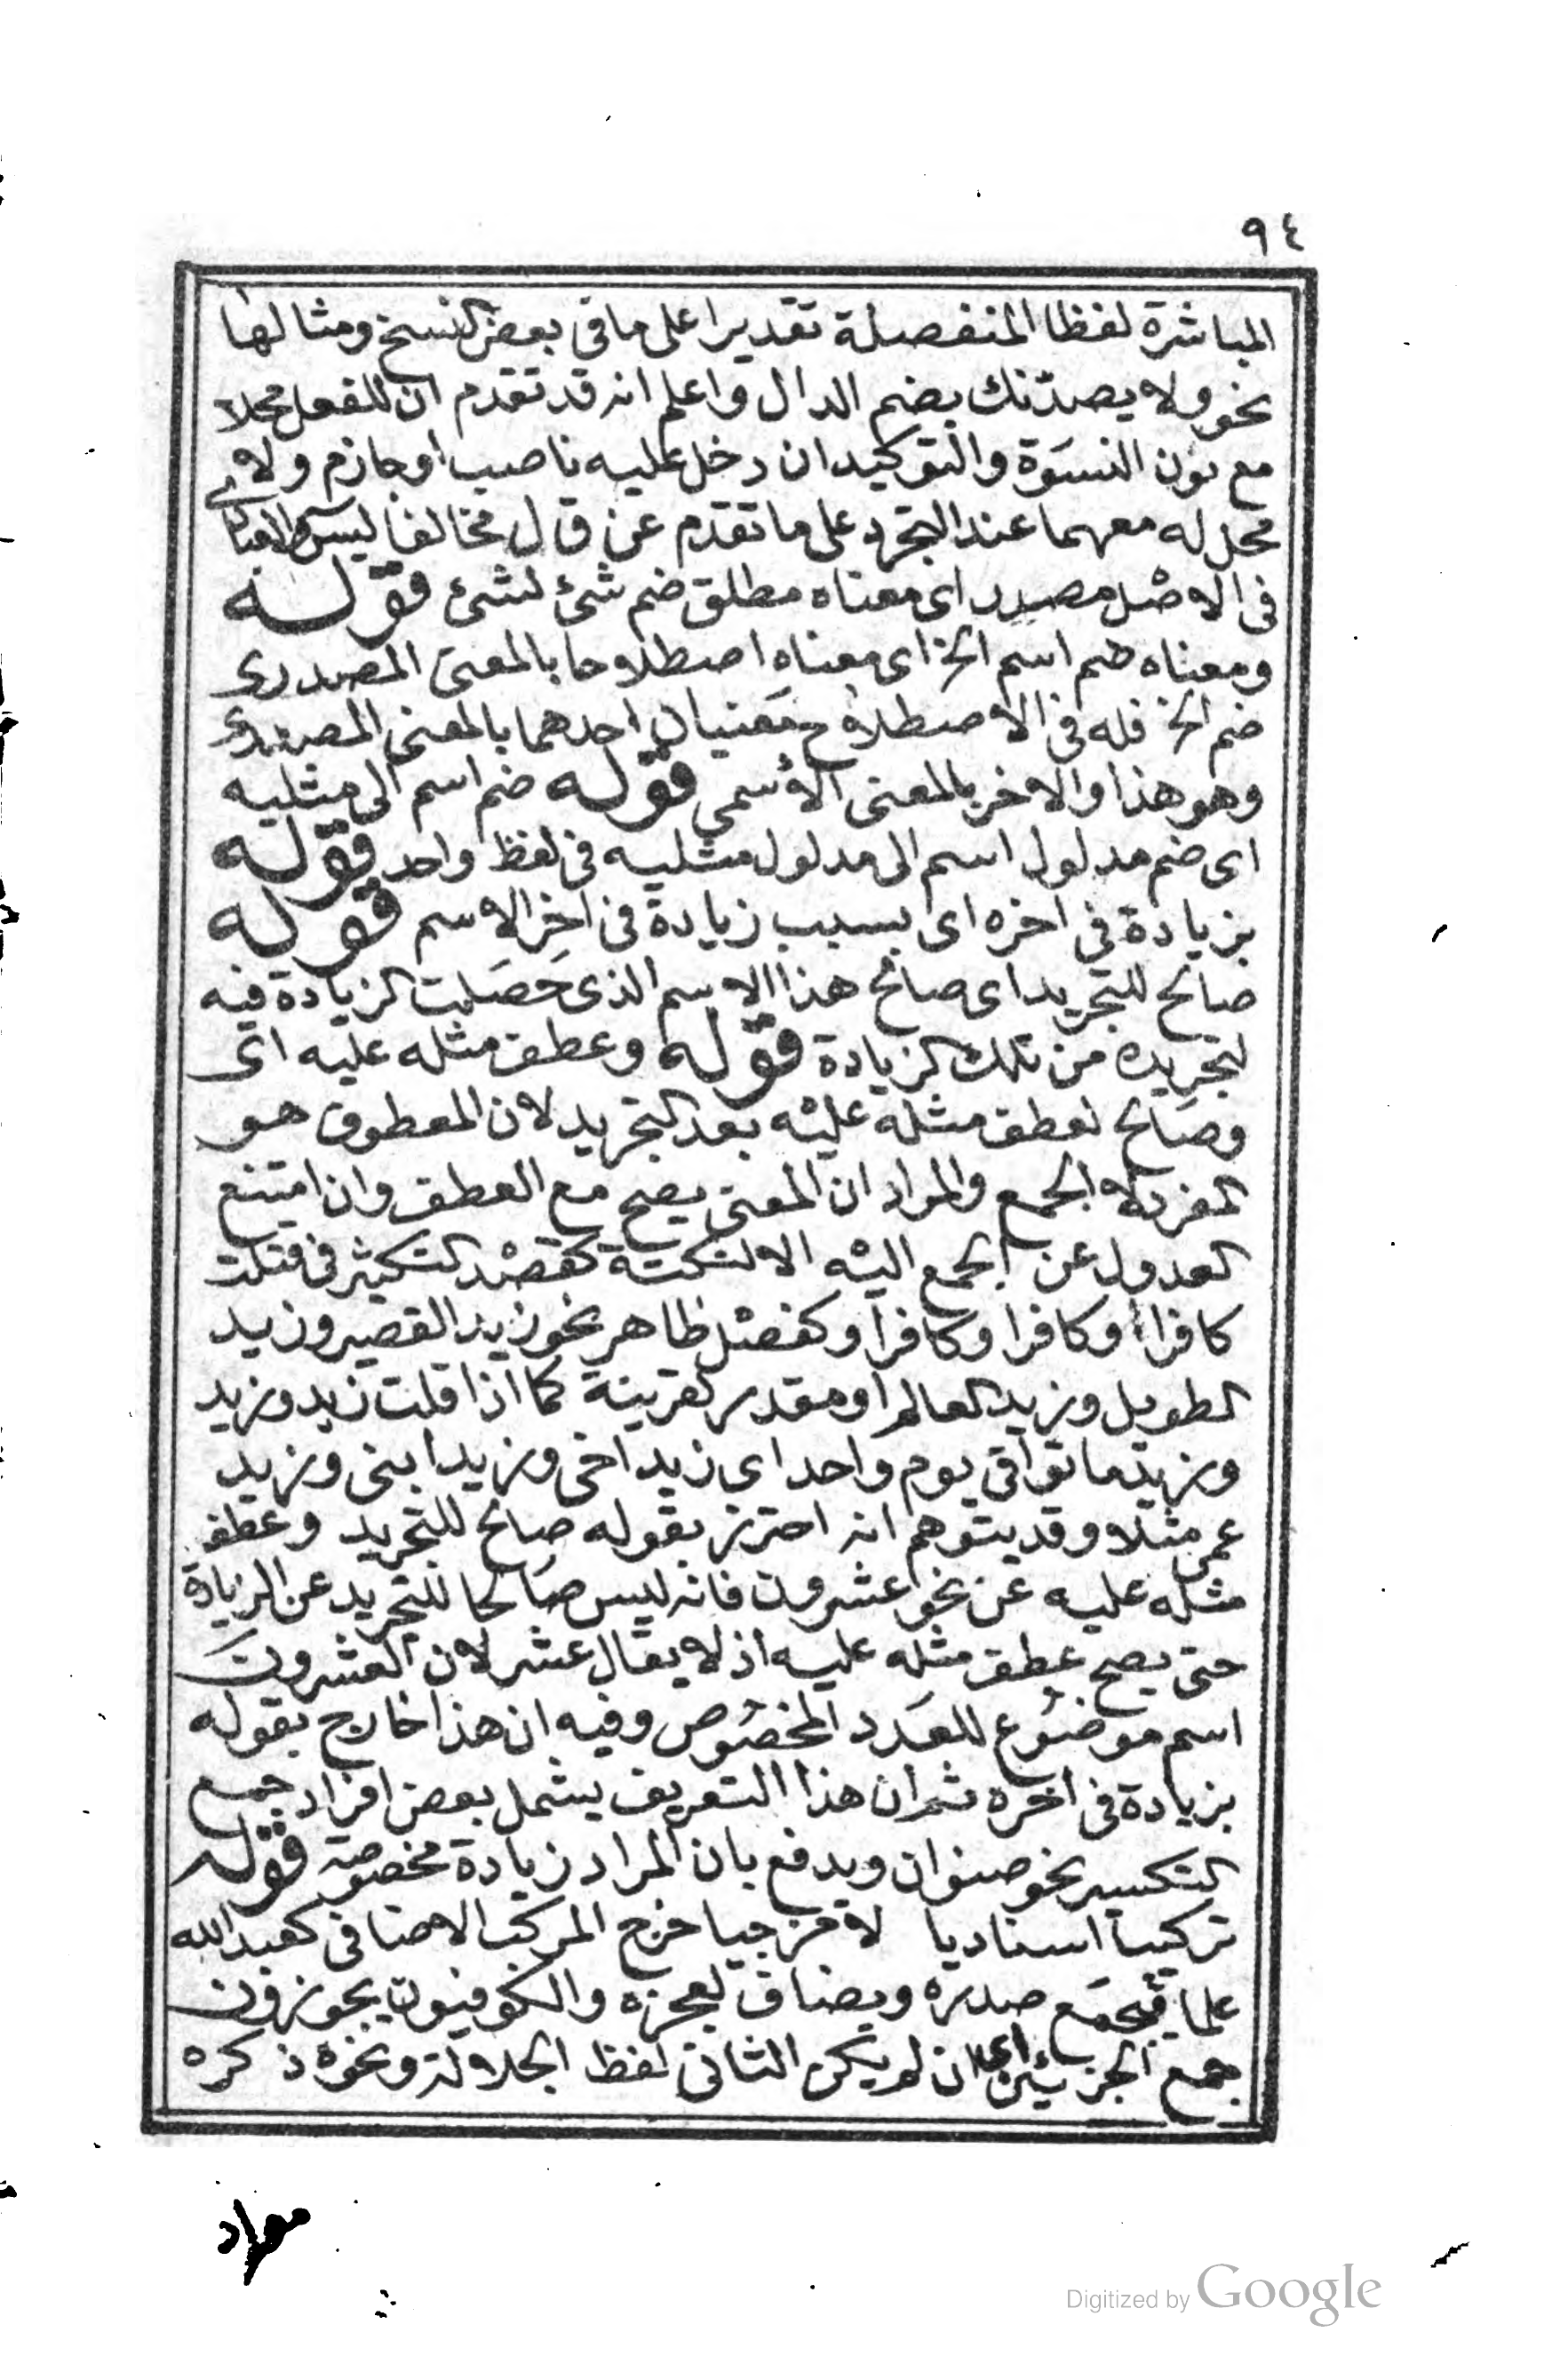 ٩٤
المباشرة لفظا المنفصلة تقديرا على ما فى بعض النسخ ومثالها
نحو ولا يصدّنك بضم الدال واعلم انه قد تقدم ان للفعل محلا
مع نون النسوة والتوكيد ان دخل عليه ناصب او جازم ولا
محل له معهما عند التجرد على ما تقدم عن قال مخالفا ليس
فى الاصل مصدر اى معناه مطلق ضم شئ لشئ قوله
ومعناه ضم اسم الخ اى معناه اصطلاحا بالمعنى المصدرى
ضم الخ فله فى الاصطلاح معنيان احدهما بالمعنى المصدرى
وهو هذا والاخر بالمعنى الاسمى قوله ضم اسم الى مثليه
اى ضم مدلول اسم الى مدلول مثليه فى لفظ واحد قوله
بزيادة فى اخره اى بسبب زيادة فى اخر الاسم قوله
صالح للتجريد اى صالح هذا الاسم الذى حصلت الزيادة فيه
لتجريده من تلك الزيادة قوله وعطف مثله عليه اى
وصالح لعطف مثله عليه بعد التجريد لان المعطوف هو
المفرد لا الجمع والمراد ان المعنى يصح مع العطف وان امتنع
العدول عن الجمع اليه الا لنكتة كقصد التكثير فى قتلت
كافرا وكافرا وكافرا وكفصل ظاهر نحو زيد القصير وزيد
الطويل وزيد العالم او مقدر لقرينة كما اذا قلت زيد وزيد
وزيد ماتوا فى يوم واحد اى زيد اخى وزيد ابنى وزيد
عمى مثلا وقد يتوهم انه احترز بقوله صالح للتجريد وعطف
مثله عليه عن نحو عشرون فانه ليس صالحا للتجريد عن الزيادة
حتى يصح عطف مثله عليه اذ لا يقال عشر لان العشرون
اسم موضوع للعدد المخصوص وفيه ان هذا خارج بقوله
بزيادة فى اخره ثم ان هذا التعريف يشمل بعض افراد جمع
التكسير نحو صنوان ويدفع بان المراد زيادة مخصوصة قوله
تركيبا اسناديا لا مزجيا خرج المركب الاضافى كعبد الله
علما فيجمع صدره ويضاف لعجزه والكوفيون يجوزون
جمع الجزئين اى ان لم يكن الثانى لفظ الجلالة ونحوه ذكره
Digitized by Google